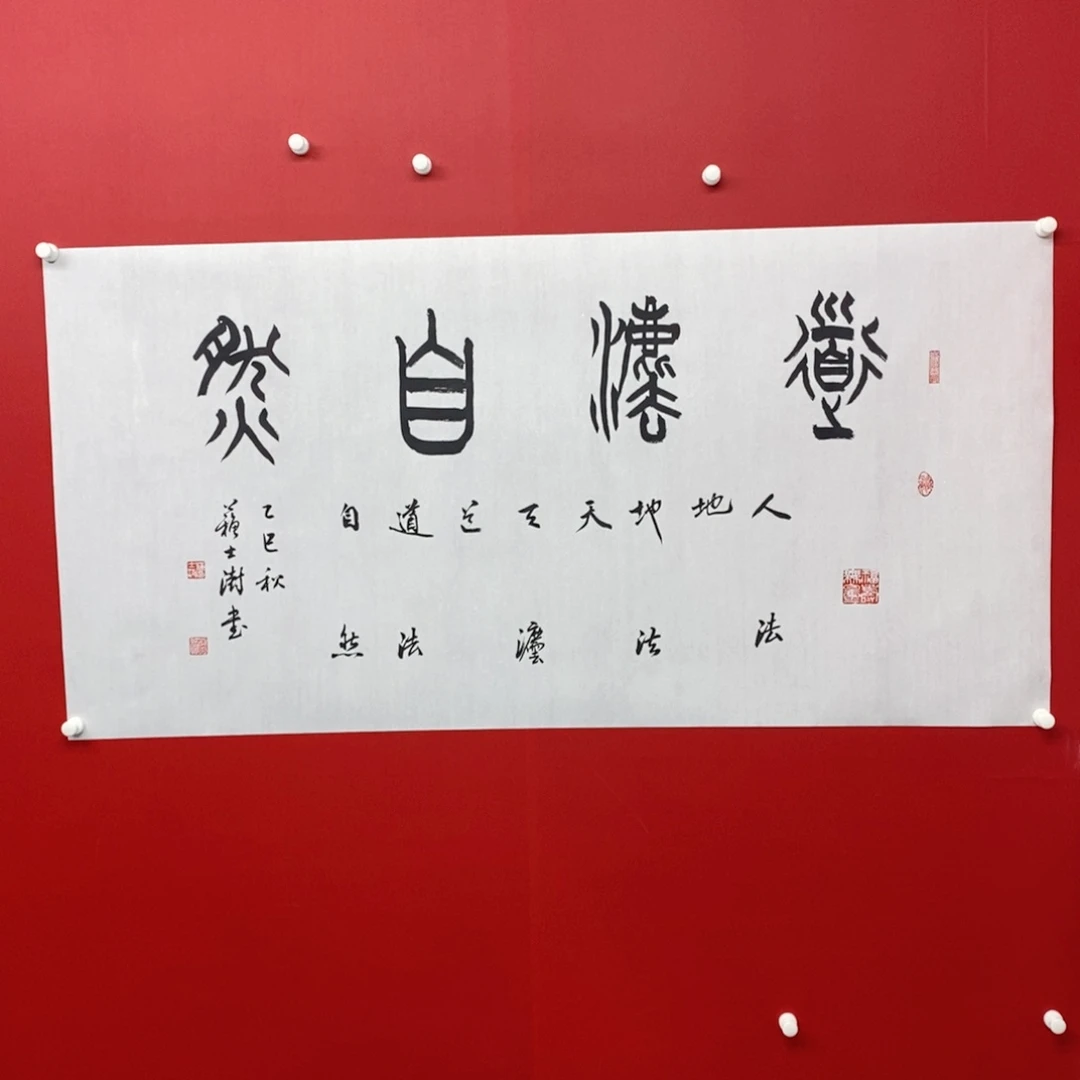 道灋自然
人法
地
地法
天
天灋
道
道法
自然
乙巳秋
蘇士澍書